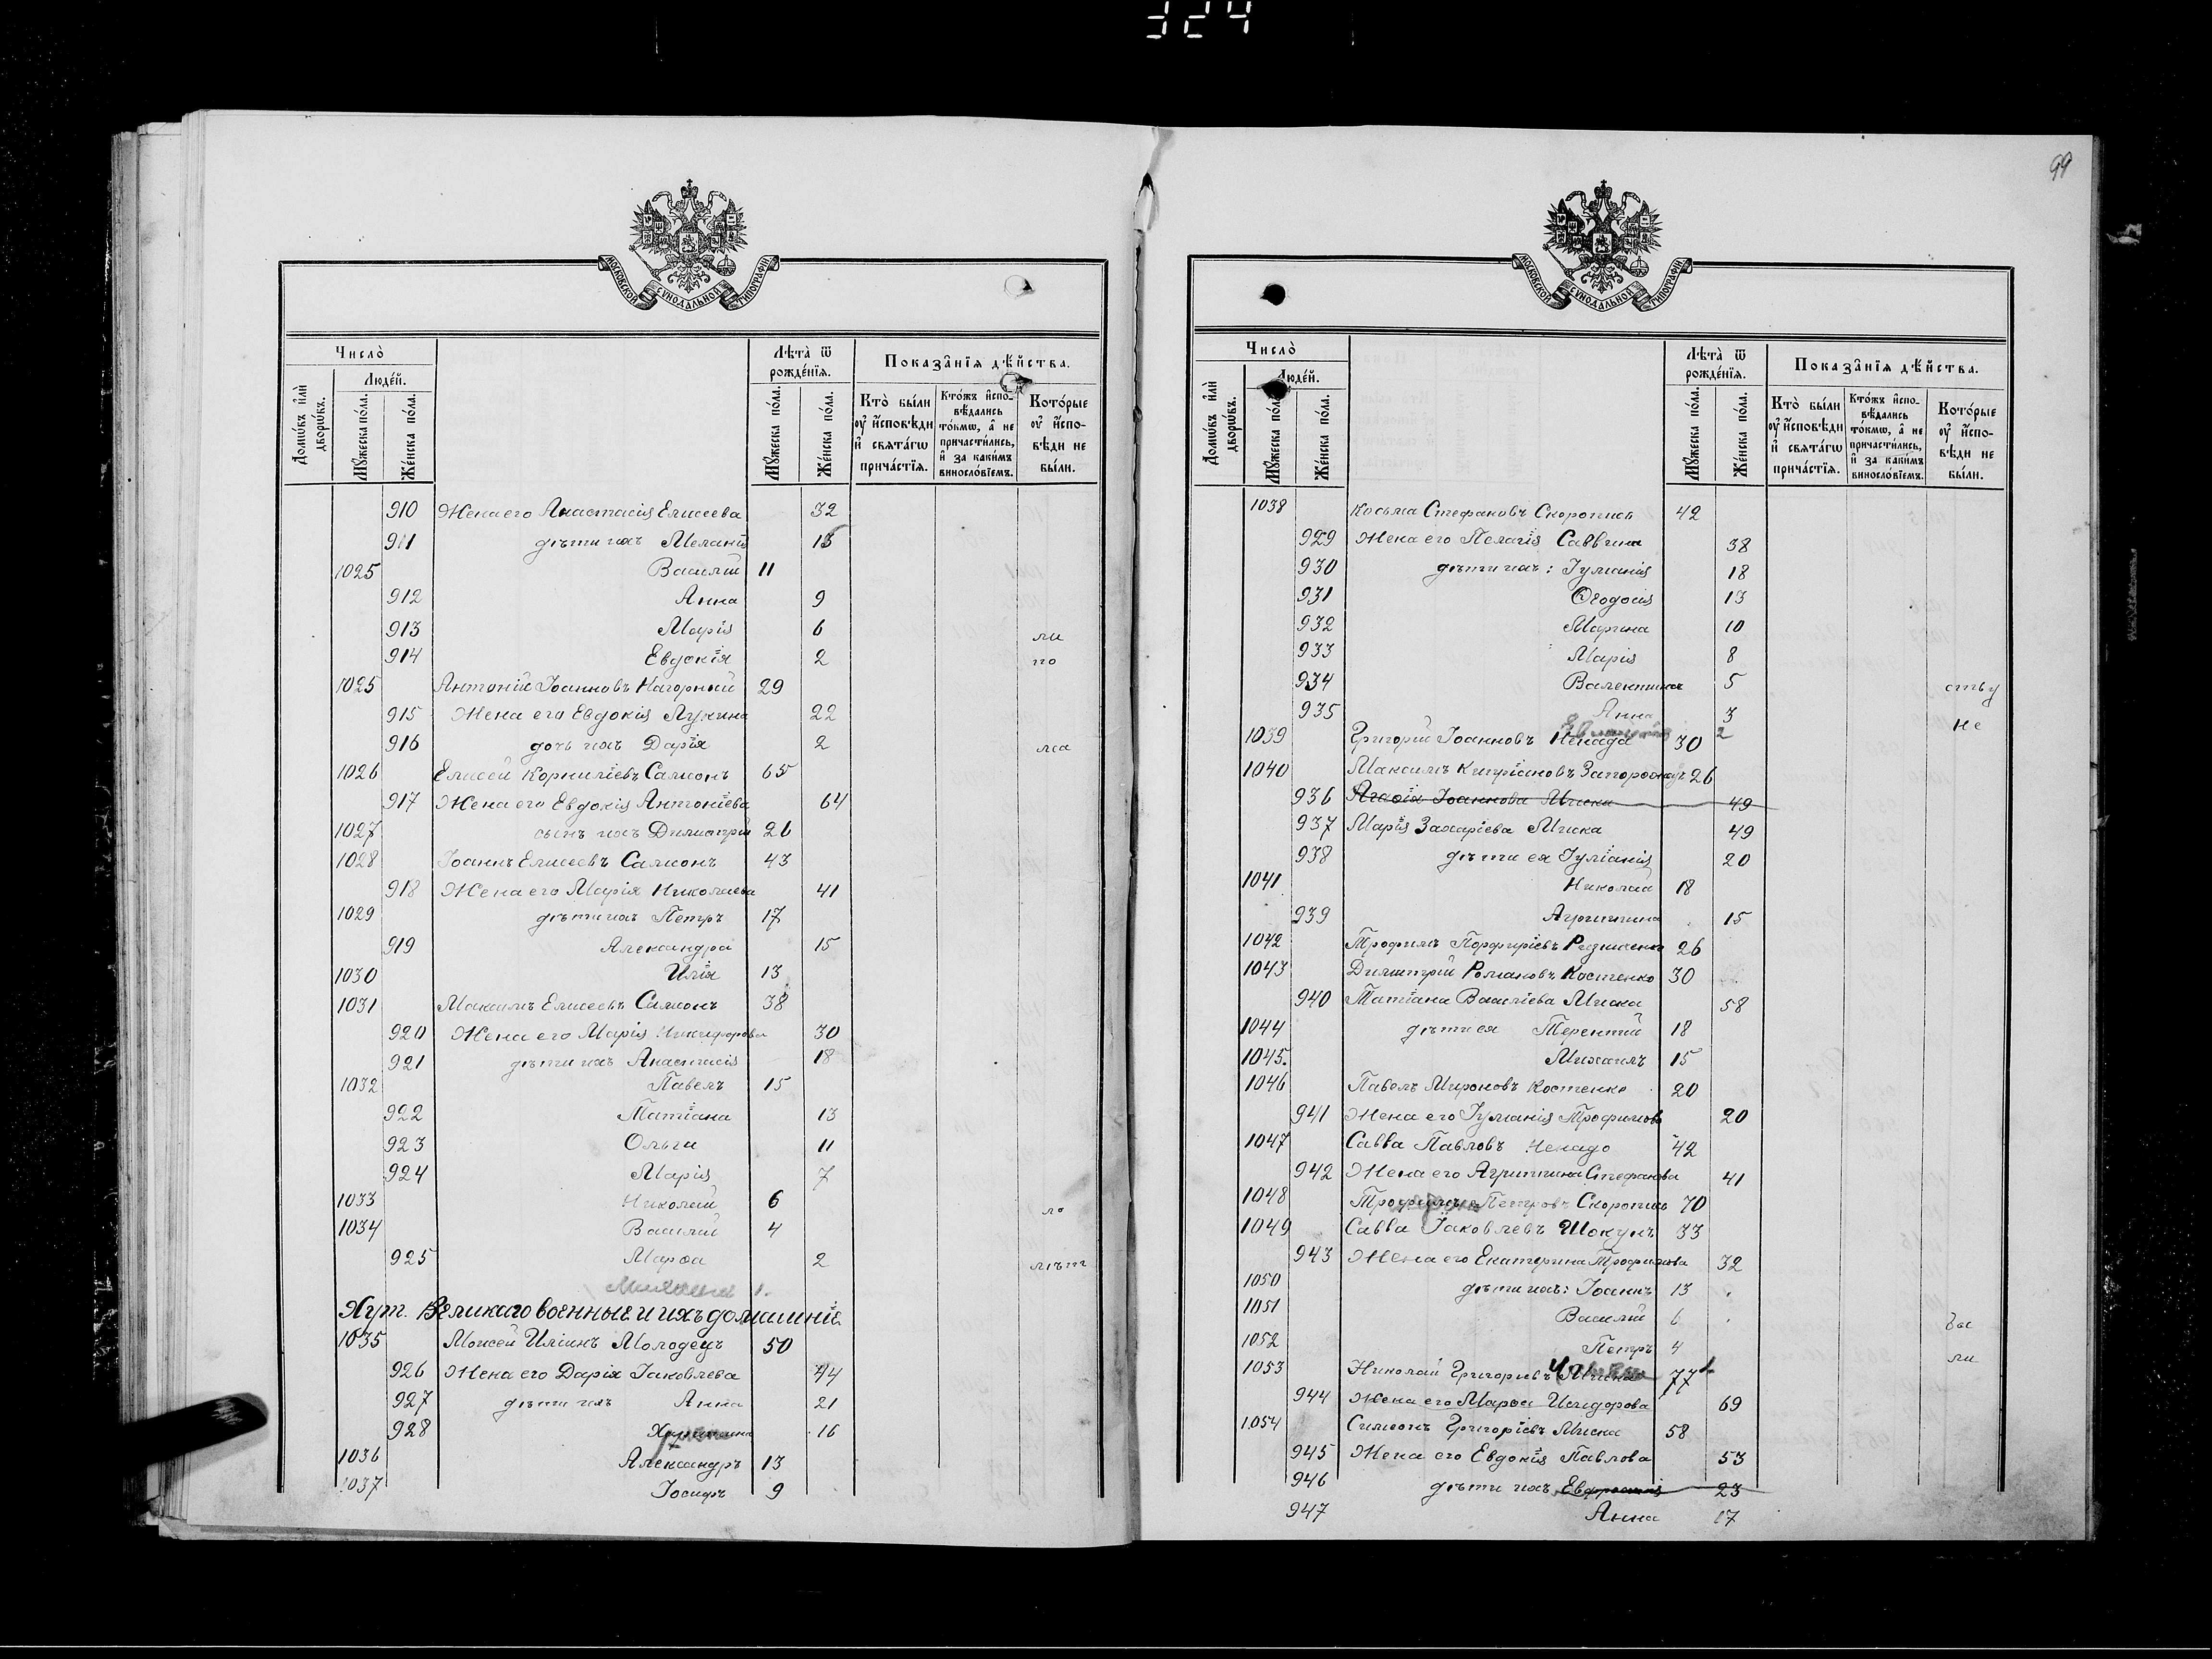 324
МОСКОВСКОЙ СѴНОДАЛЬНОЙ ТИПОГРАФІИ
Число̀
Людѐй.
Домѡ́въ и҆лѝ дворѡ́въ.
Мꙋ́жеска по́ла.
Же́нска по́ла.
Лѣ́та ѿ рожде́нїѧ.
Мꙋ́жеска по́ла.
Же́нска по́ла.
Показа̂нїѧ дѣ́йства.
Кто̀ бы́ли оу҆ и҆сповѣ́ди и҆ свѧта́гѡ прича́стїѧ.
Кто́жъ и҆спо-вѣ́дались то́кмѡ, а҆ не причасти́лись, и҆ за каки́мъ винослóвїемъ.
Кото́рые оу҆ и҆спо-вѣ́ди не бы́ли.
910 Жена его Анастасія Елисеева 32
911 дѣти ихъ Меланія 15
1025 Василій 11
912 Анна 9
913 Марія 6 ми
914 Евдокія 2 по
1025 Антоній Іоанновъ Нагорный 29
915 Жена его Евдокія Лукина 22
916 дочь ихъ Дарія 2 лѣа
1026 Елисей Корниліевъ Самонъ 65
917 Жена его Евдокія Антоніева 64
1027 сынъ ихъ Димитрій 26
1028 Іоаннъ Елисеевъ Самонъ 43
918 Жена его Марія Николаева 41
1029 дѣти ихъ Петръ 17
919 Александра 15
1030 Илія 13
1031 Максимъ Елисеевъ Самонъ 38
920 Жена его Марія Никифорова 30
921 дѣти ихъ Анастасія 18
1032 Павелъ 15
922 Татіана 13
923 Ольга 11
924 Марія 7
1033 Николай 6 ло
1034 Василій 4
925 Марѳа 2 лѣт
1.
Хут. Великаго военные и ихъ домашніе
1035 Моисей Иліинъ Молодецъ 50
926 Жена его Дарія Іаковлева 44
927 дѣти ихъ Анна 21
928 16
1036 Александръ 13
1037 Іосифъ 9
99
МОСКОВСКОЙ СѴНОДАЛЬНОЙ ТИПОГРАФІИ
Число̀
Людѐй.
Домѡ́въ и҆лѝ дворѡ́въ.
Мꙋ́жеска по́ла.
Же́нска по́ла.
Лѣ́та ѿ рожде́нїѧ.
Мꙋ́жеска по́ла.
Же́нска по́ла.
Показа̂нїѧ дѣ́йства.
Кто̀ бы́ли оу҆ и҆сповѣ́ди и҆ свѧта́гѡ прича́стїѧ.
Кто́жъ и҆спо-вѣ́дались то́кмѡ, а҆ не причасти́лись, и҆ за каки́мъ винослóвїемъ.
Кото́рые оу҆ и҆спо-вѣ́ди не бы́ли.
1038 Косьма Стефановъ Скоропись 42
929 Жена его Пелагія Саввина 38
930 дѣти ихъ: Іуліанія 18
931 Ѳеодосія 13
932 Марина 10
933 Марія 8
934 Валентина 5 ству
935 Анна 3 не
2
1039 Григорій Іоанновъ Ненада 30
1040 Максимъ Кипріановъ Запорожецъ 26
936 Агаѳія Іоаннова Миска 49
937 Марія Захаріева Миска 49
938 дѣти ея Іуліанія 20
1041 Николай 18
939 Агриппина 15
1042 Трофимъ Порфиріевъ Резниченко 26
1043 Димитрій Романовъ Костенко 30
940 Татіана Василіева Миска 58
1044 дѣти ея Терентій 18
1045. Михаилъ 15
1046 Павелъ Мироновъ Костенко 20
941 Жена его Іуліанія Трофимова 20
1047 Савва Павловъ Ненадо 42
942 Жена его Агриппина Стефанова 41
1048 Петровъ Скоропись 70
1049 Савва Іаковлевъ Шокунъ 33
943 Жена его Екатерина Трофимова 32
1050 дѣти ихъ: Іоаннъ 13
1051 Василій 6 бы
1052 Петръ 4 ли
1053 Николай Григорьевъ 77
944 Жена его Марѳа Исидорова 69
1054 Симеонъ Григоріевъ Миска 58
945 Жена его Евдокія Павлова 53
946 дѣти ихъ Евфросинія 23
947 Анна 17